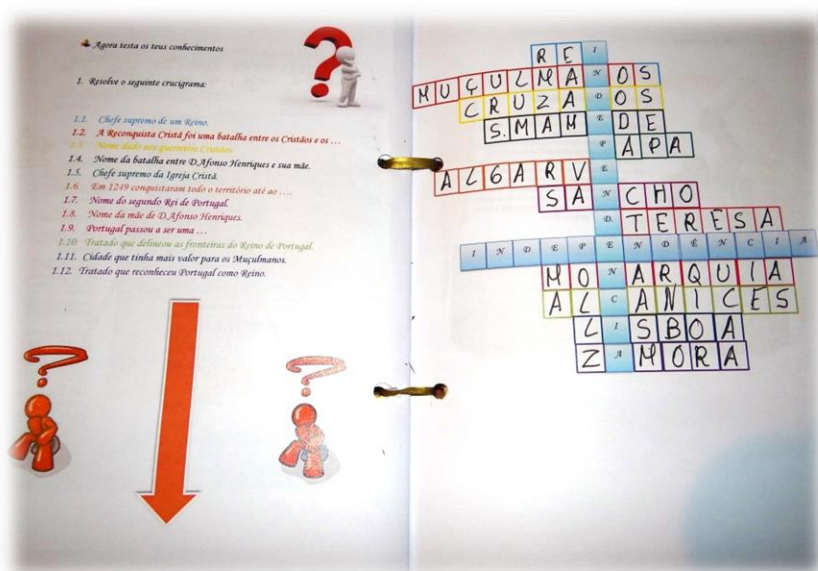 Agora testa os teus conhecimentos
1. Resolve o seguinte crucigrama:
1.1. Chefe supremo de um Reino.
1.2. A Reconquista Cristã foi uma batalha entre os Cristãos e os …
1.3. Nome dado aos guerreiros Cristãos.
1.4. Nome da batalha entre D.Afonso Henriques e sua mãe.
1.5. Chefe supremo da Igreja Cristã.
1.6. Em 1249 conquistaram todo o território até ao ….
1.7. Nome do segundo Rei de Portugal.
1.8. Nome da mãe de D.Afonso Henriques.
1.9. Portugal passou a ser uma …
1.10. Tratado que delineou as fronteiras do Reino de Portugal.
1.11. Cidade que tinha mais valor para os Muçulmanos.
1.12. Tratado que reconheceu Portugal como Reino.
REI
MUÇULMANOS
CRUZADOS
S.MAMEDE
PAPA
ALGARVE
SANCHO
D.TERESA
INDEPENDÊNCIA
MONARQUIA
ALCANICES
LISBOA
ZAMORA